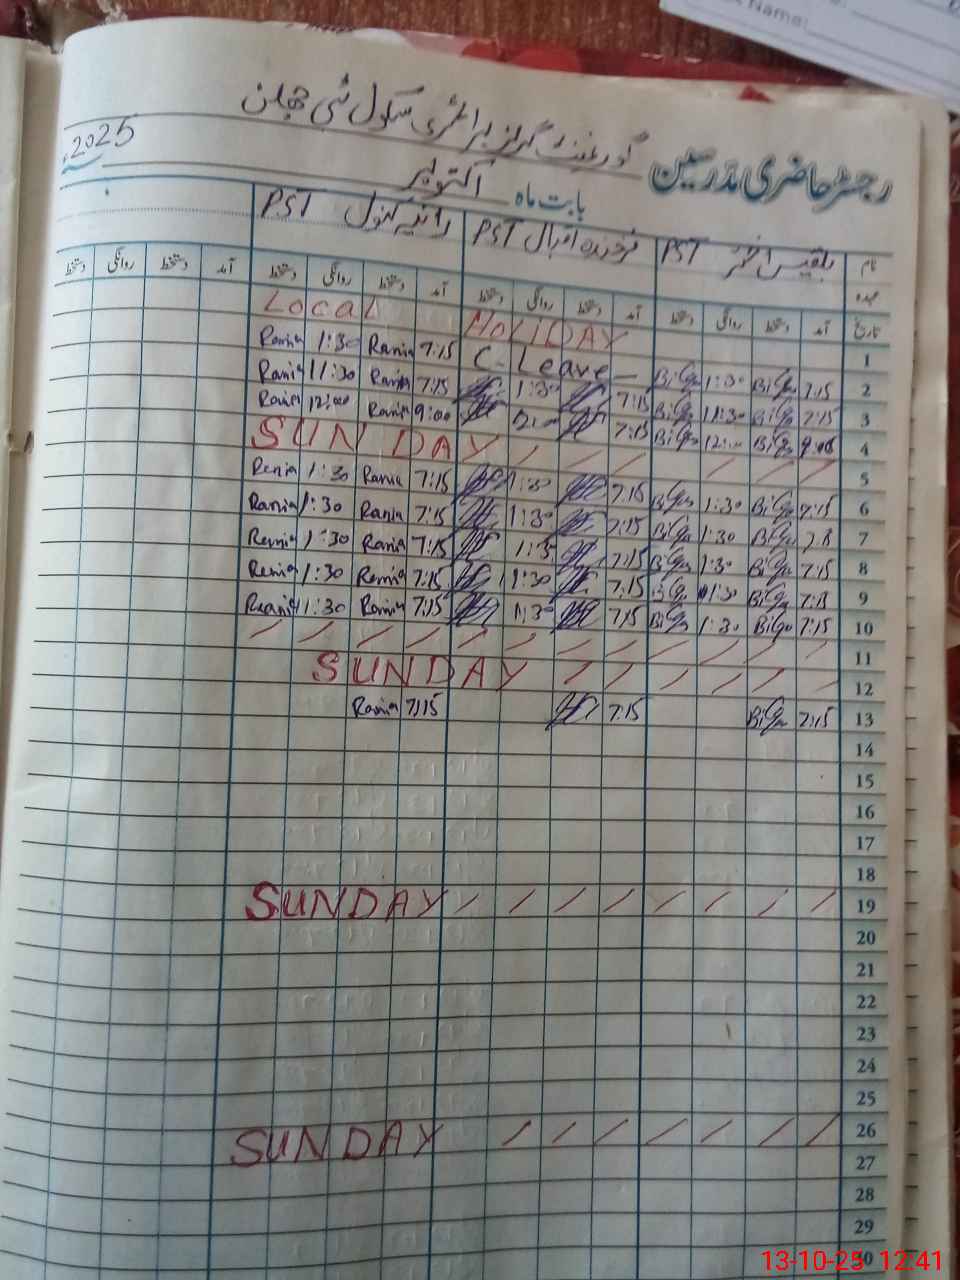 Name:
گورنمنٹ گرلز پرائمری سکول نئی جھلن
رجسٹر حاضری مدرسین
بابت ماہ اکتوبر 2025
نام بلقیس اختر PST فرخندہ اقبال PST رانیہ کنول PST
عہدہ
تاریخ آمد دستخط روانگی دستخط آمد دستخط روانگی دستخط آمد دستخط روانگی دستخط آمد دستخط روانگی دستخط
1 LOCAL HOLIDAY
2 7:15 1:30 C-Leave 7:15 Rania 1:30 Rania
3 7:15 11:30 7:15 1:30 7:15 Rania 11:30 Rania
4 12:00 7:15 9:00 Rania 12:00 Rania
5 SUNDAY / / / / / / /
6 7:15 1:30 7:15 1:30 7:15 Rania 1:30 Rania
7 1:30 7:15 1:30 7:15 Rania 1:30 Rania
8 7:15 1:30 7:15 7:15 Rania 1:30 Rania
9 1:30 7:15 1:30 7:15 Rania 1:30 Rania
10 7:15 1:30 7:15 1:30 7:15 Rania 1:30 Rania
11 / / / / / / / / / / / /
12 SUNDAY / / / / / /
13 7:15 7:15 7:15 Rania
14
15
16
17
18
19 SUNDAY / / / / / / / /
20
21
22
23
24
25
26 SUNDAY / / / / / / /
27
28
29
30
13-10-25 12:41